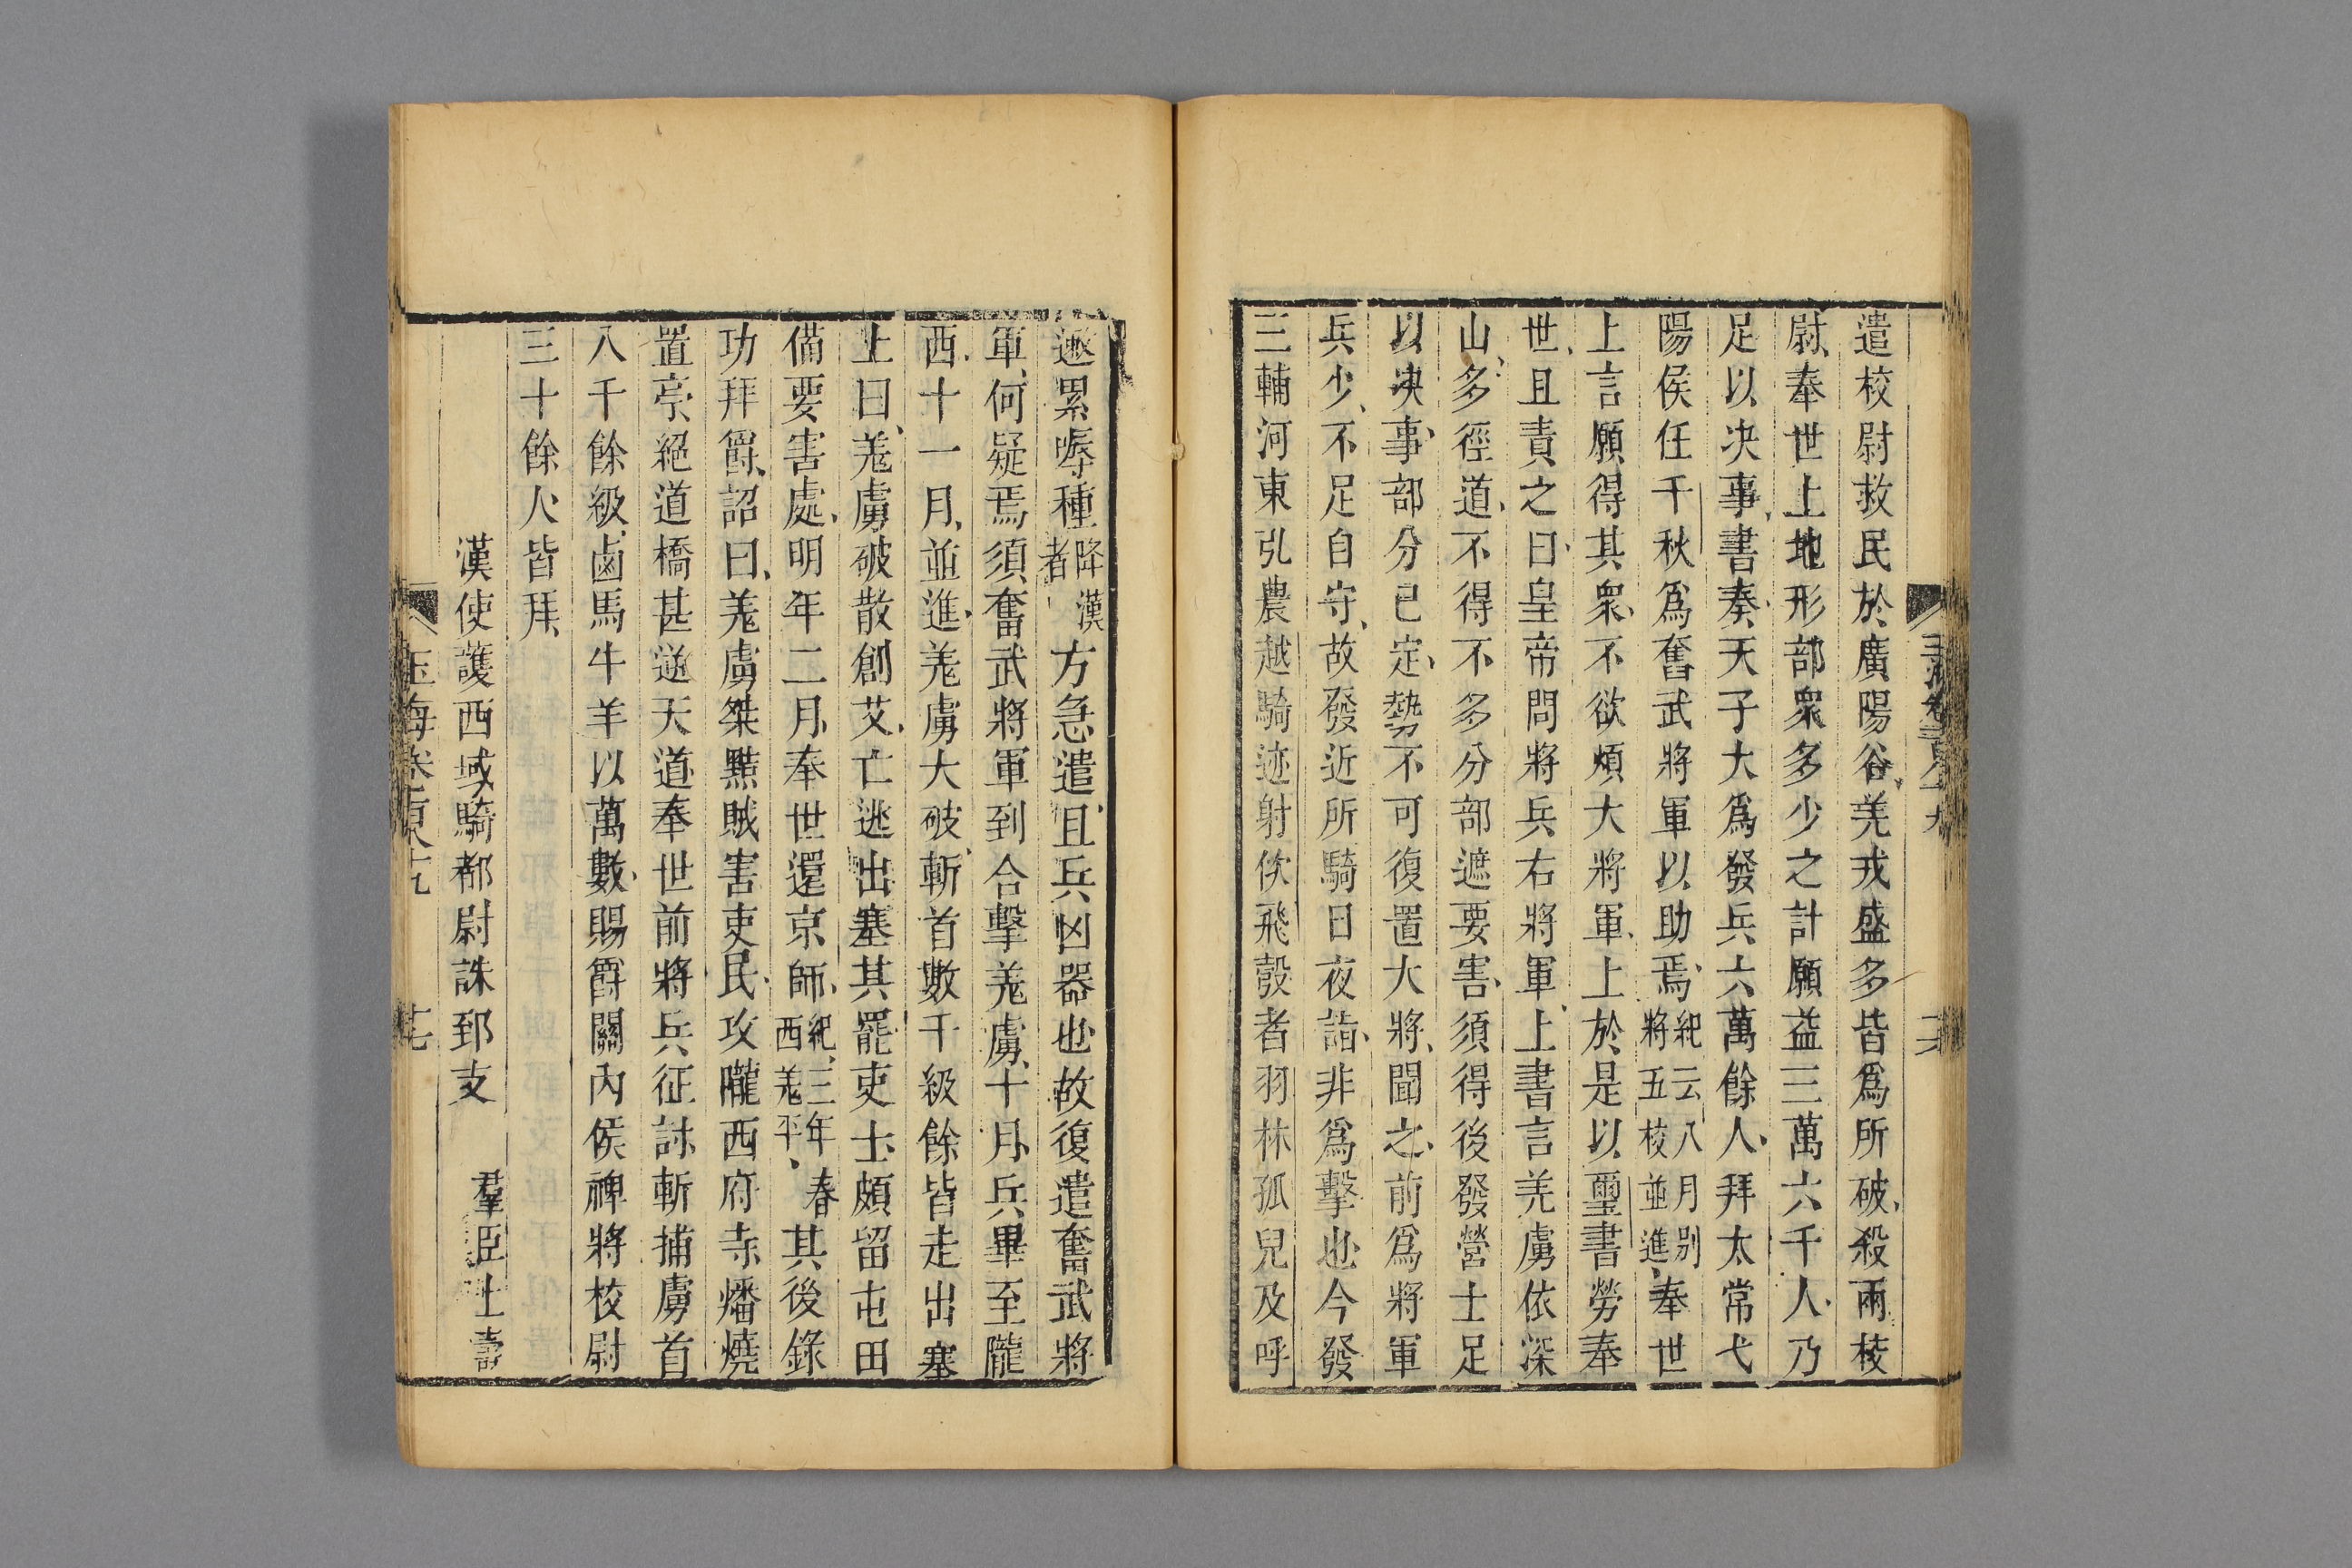 遣校尉救民於廣陽谷羗戎盛多皆爲所破殺兩校
尉奉世上地形部衆多少之計願益三萬六千人乃
足以决事書奏天子大爲發兵六萬餘人拜太常弋
陽侯任千秋爲奮武將軍以助焉紀云八月別將五校並進奉世
上言願得其衆不欲煩大將軍上於是以璽書勞奉
世且責之曰皇帝問將兵右將軍上書言羗虜依深
山多徑道不得不多分部遮要害須得後發營士足
以决事部分已定勢不可復置大將聞之前爲將軍
兵少不足自守故發近所騎日夜詣非爲擊也今發
三輔河東弘農越騎迹射佽飛彀者羽林孤兒及呼
遬累嗕種降漢者方急遣且兵凶器也故復遣奮武將
軍何疑焉須奮武將軍到合擊羗虜十月兵畢至隴
西十一月並進羗虜大破斬首數千級餘皆走出塞
上曰羗虜破散創艾亡逃出塞其罷吏士頗留屯田
備要害處明年二月奉世還京師紀三年春西羗平其後錄
功拜爵詔曰羗虜桀黠賊害吏民攻隴西府寺燔燒
置亭絕道橋甚逆天道奉世前將兵征討斬捕虜首
八千餘級鹵馬牛羊以萬數賜爵關內侯裨將校尉
三十餘人皆拜
漢使護西域騎都尉誅郅支　羣臣上壽
玉海卷